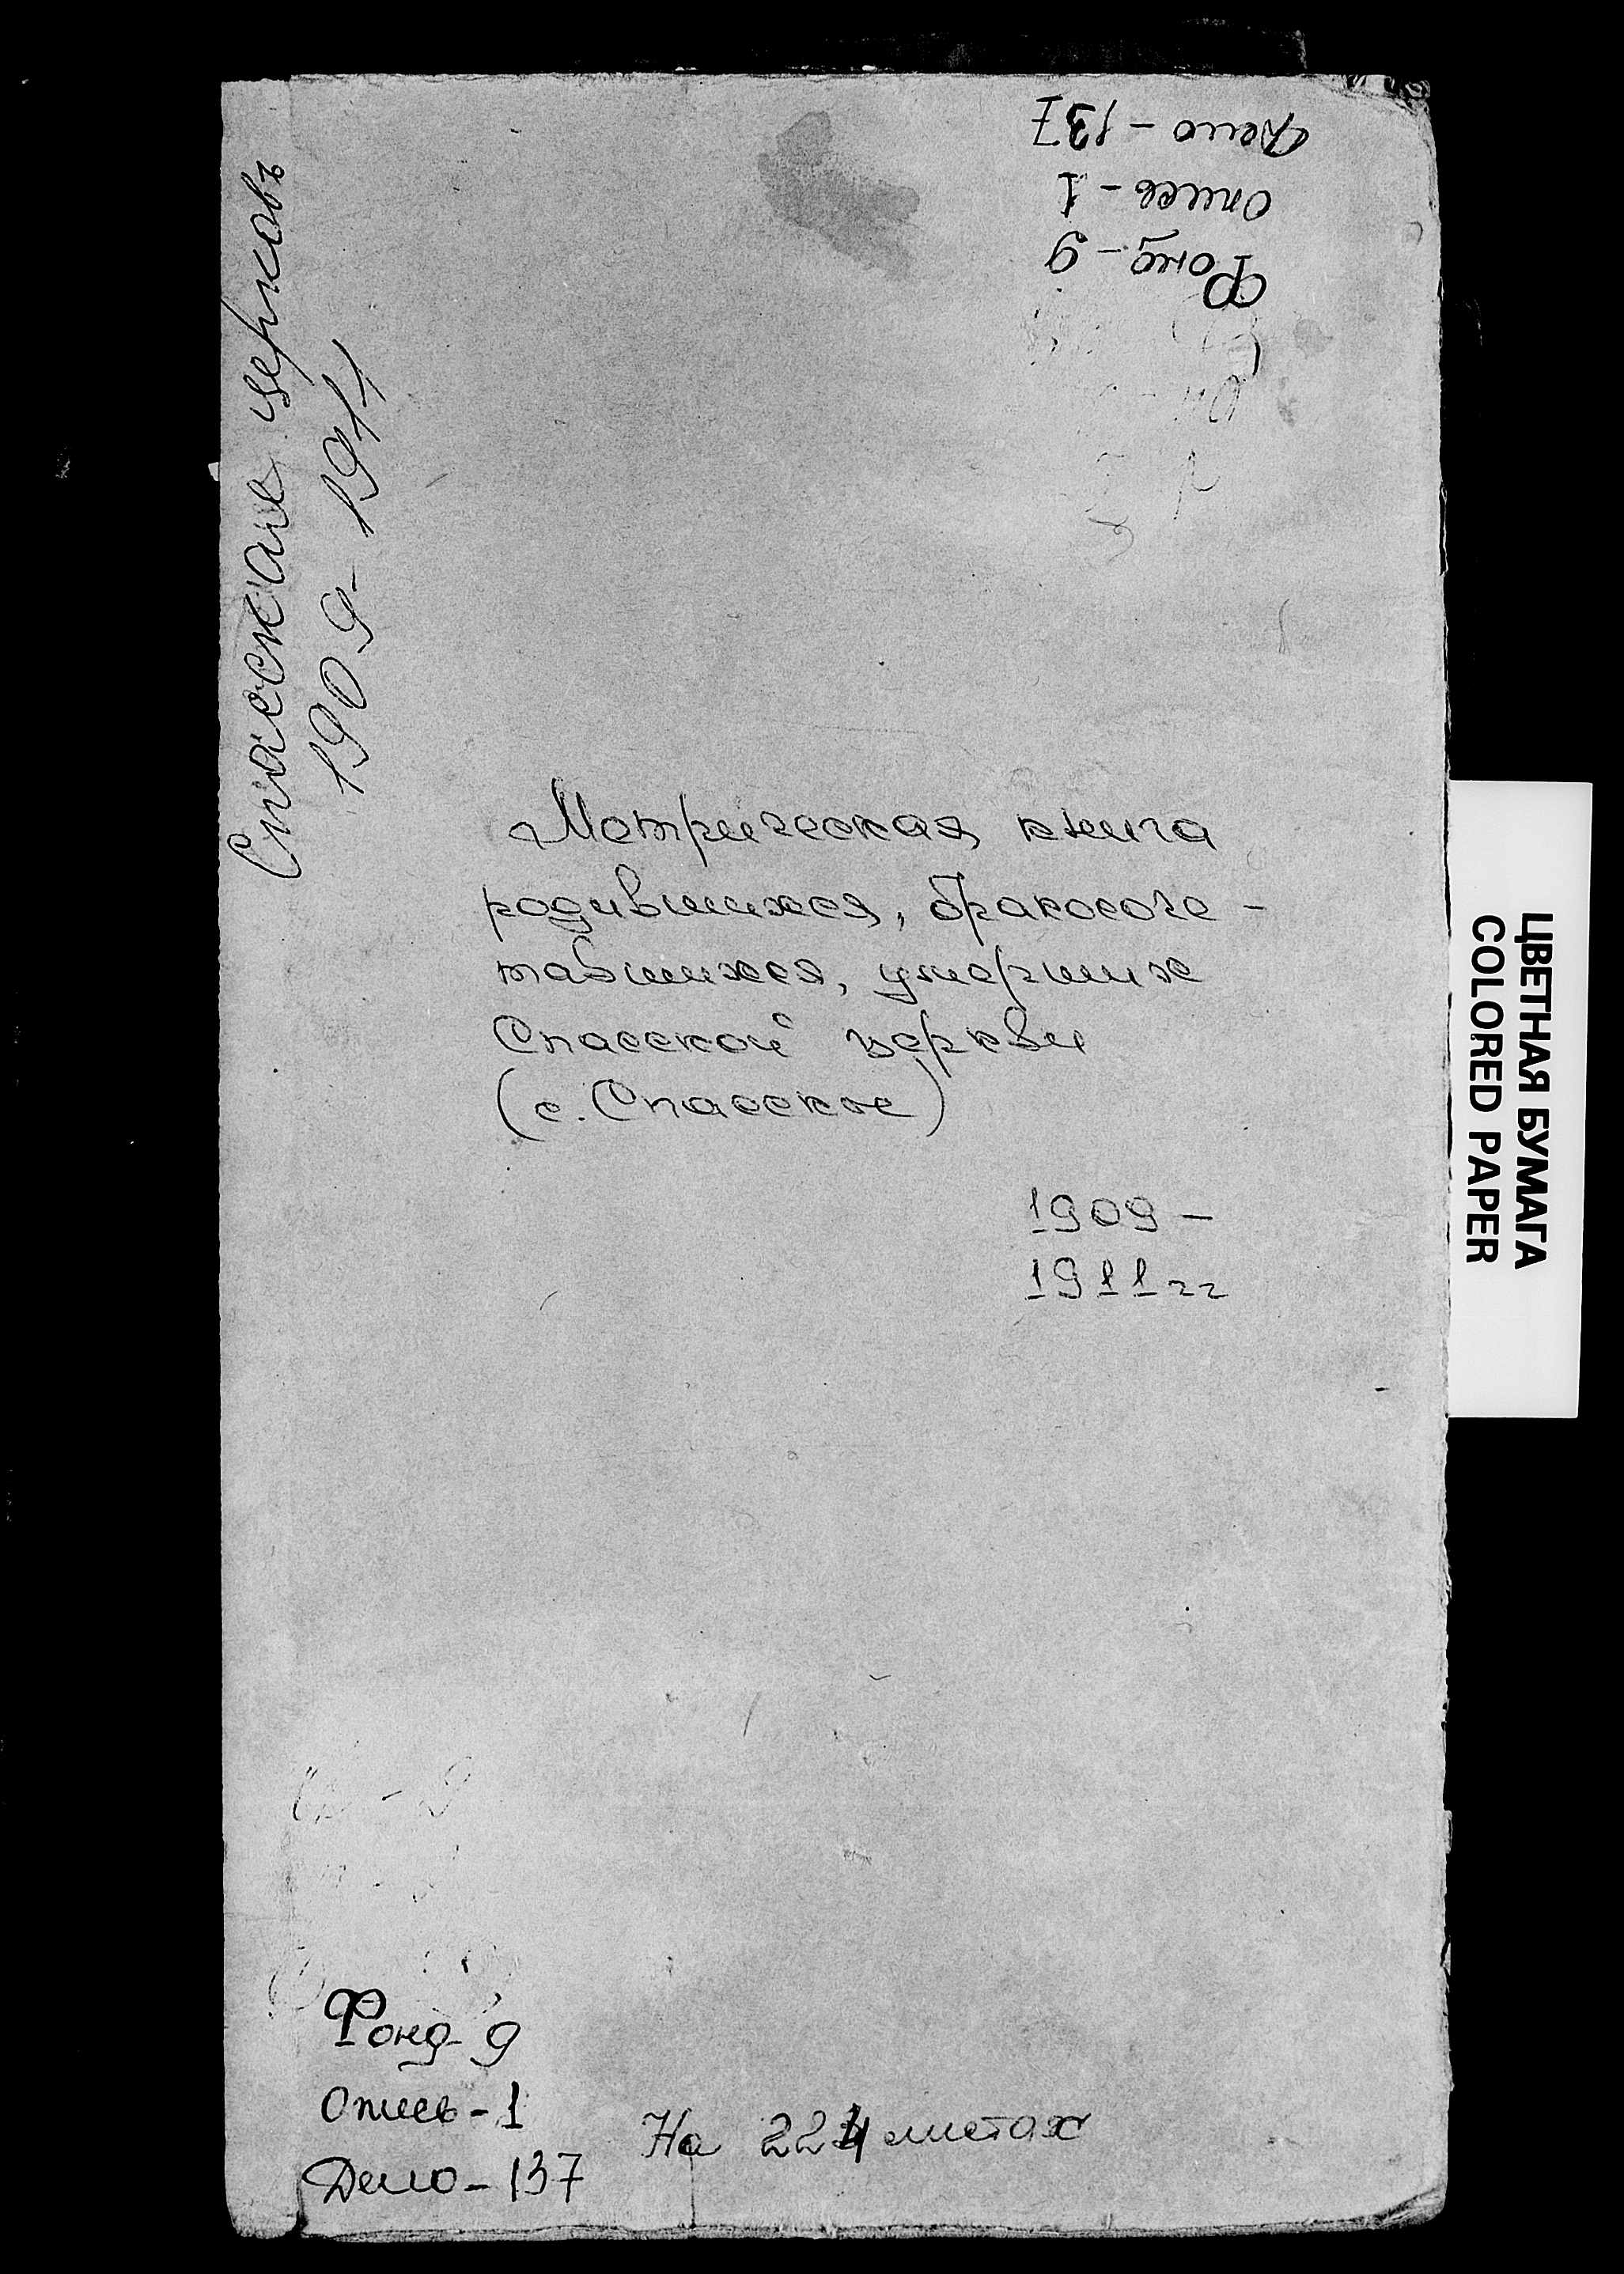 Дело - 137
опись - 1
Фонд - 9
Спасская церковь
1909 - 1911
Метрическая книга
родившихся, бракосоче -
тавшихся, умерших
Спасской церкви
(с. Спасское)
1909 -
1911 гг
ЦВЕТНАЯ БУМАГА
COLORED PAPER
Фонд - 9
опись - 1
Дело - 137
На 224 листах